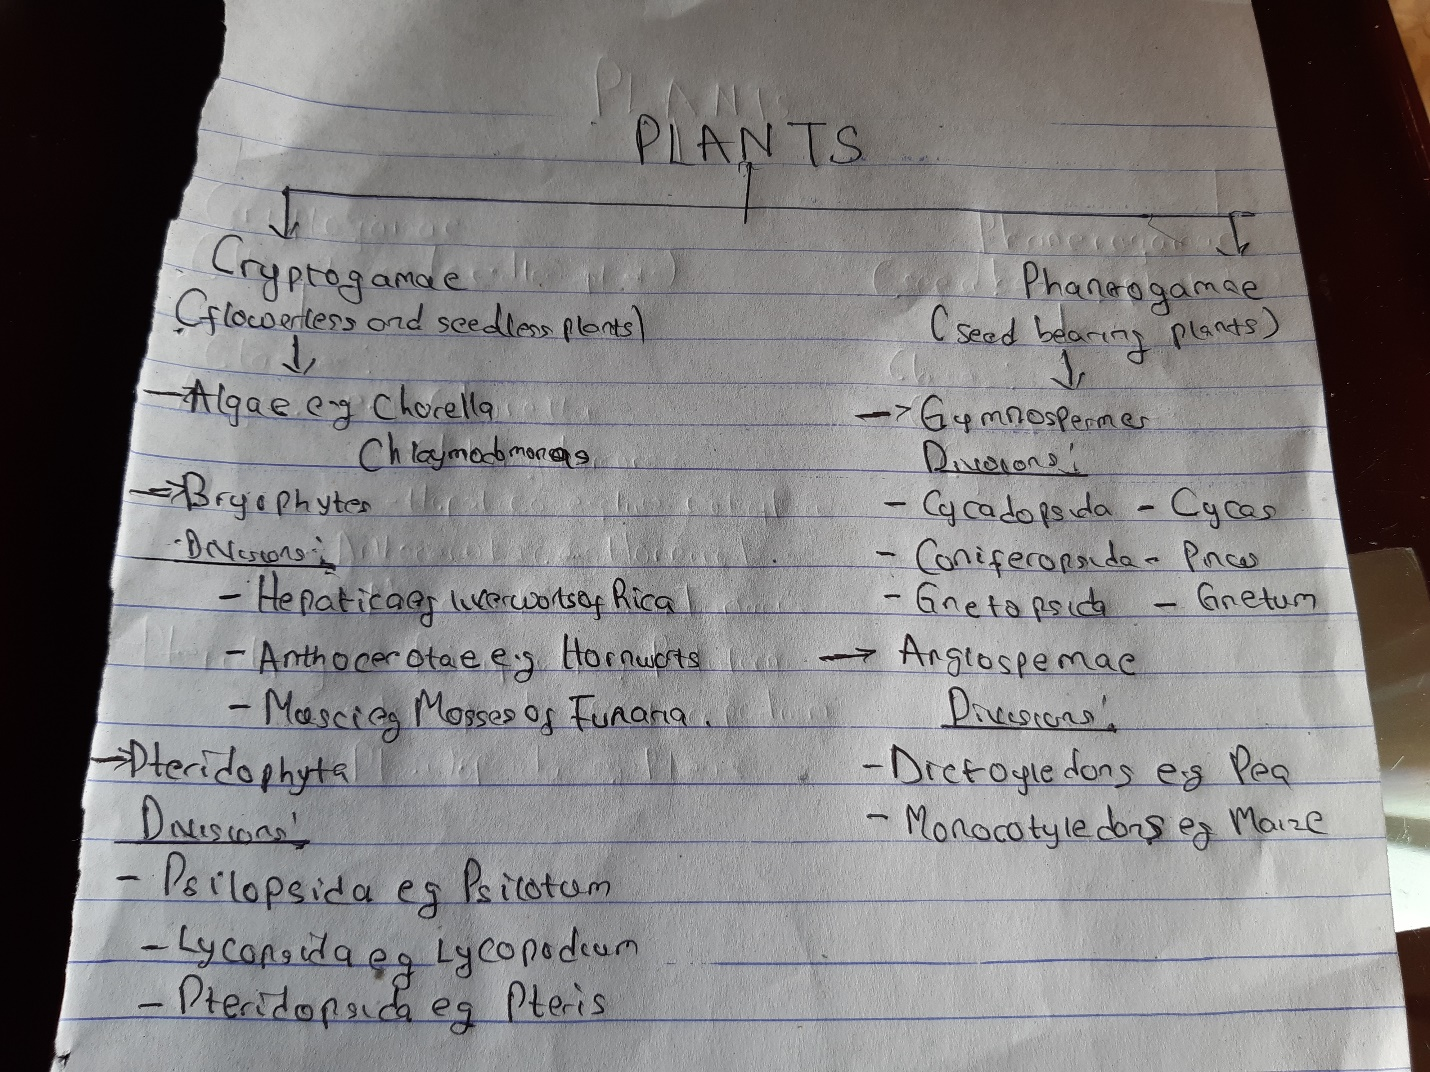 PLANTS
Cryptogamae
(flowerless and seedless plants)
→Algae e.g Chorella
Chlaymodomonas
→Bryophytes
Divisions:
- Hepaticaeg liverwortsof Rica
- Anthocerotae e.g Hornworts
- Muscieg Mosses of Funaria.
→Pteridophyta
Divisions:
- Psilopsida eg Psilotum
- Lycopsida eg Lycopodium
- Pteridopsida eg Pteris
Phanerogamae
(seed bearing plants)
→ Gymnospermes
Divisions:
- Cycadopsida - Cycas
- Coniferopsida - Pinus
- Gnetopsida - Gnetum
→ Angiospemae
Divisions:
- Dictoyledons e.g Pea
- Monocotyledons eg Maize